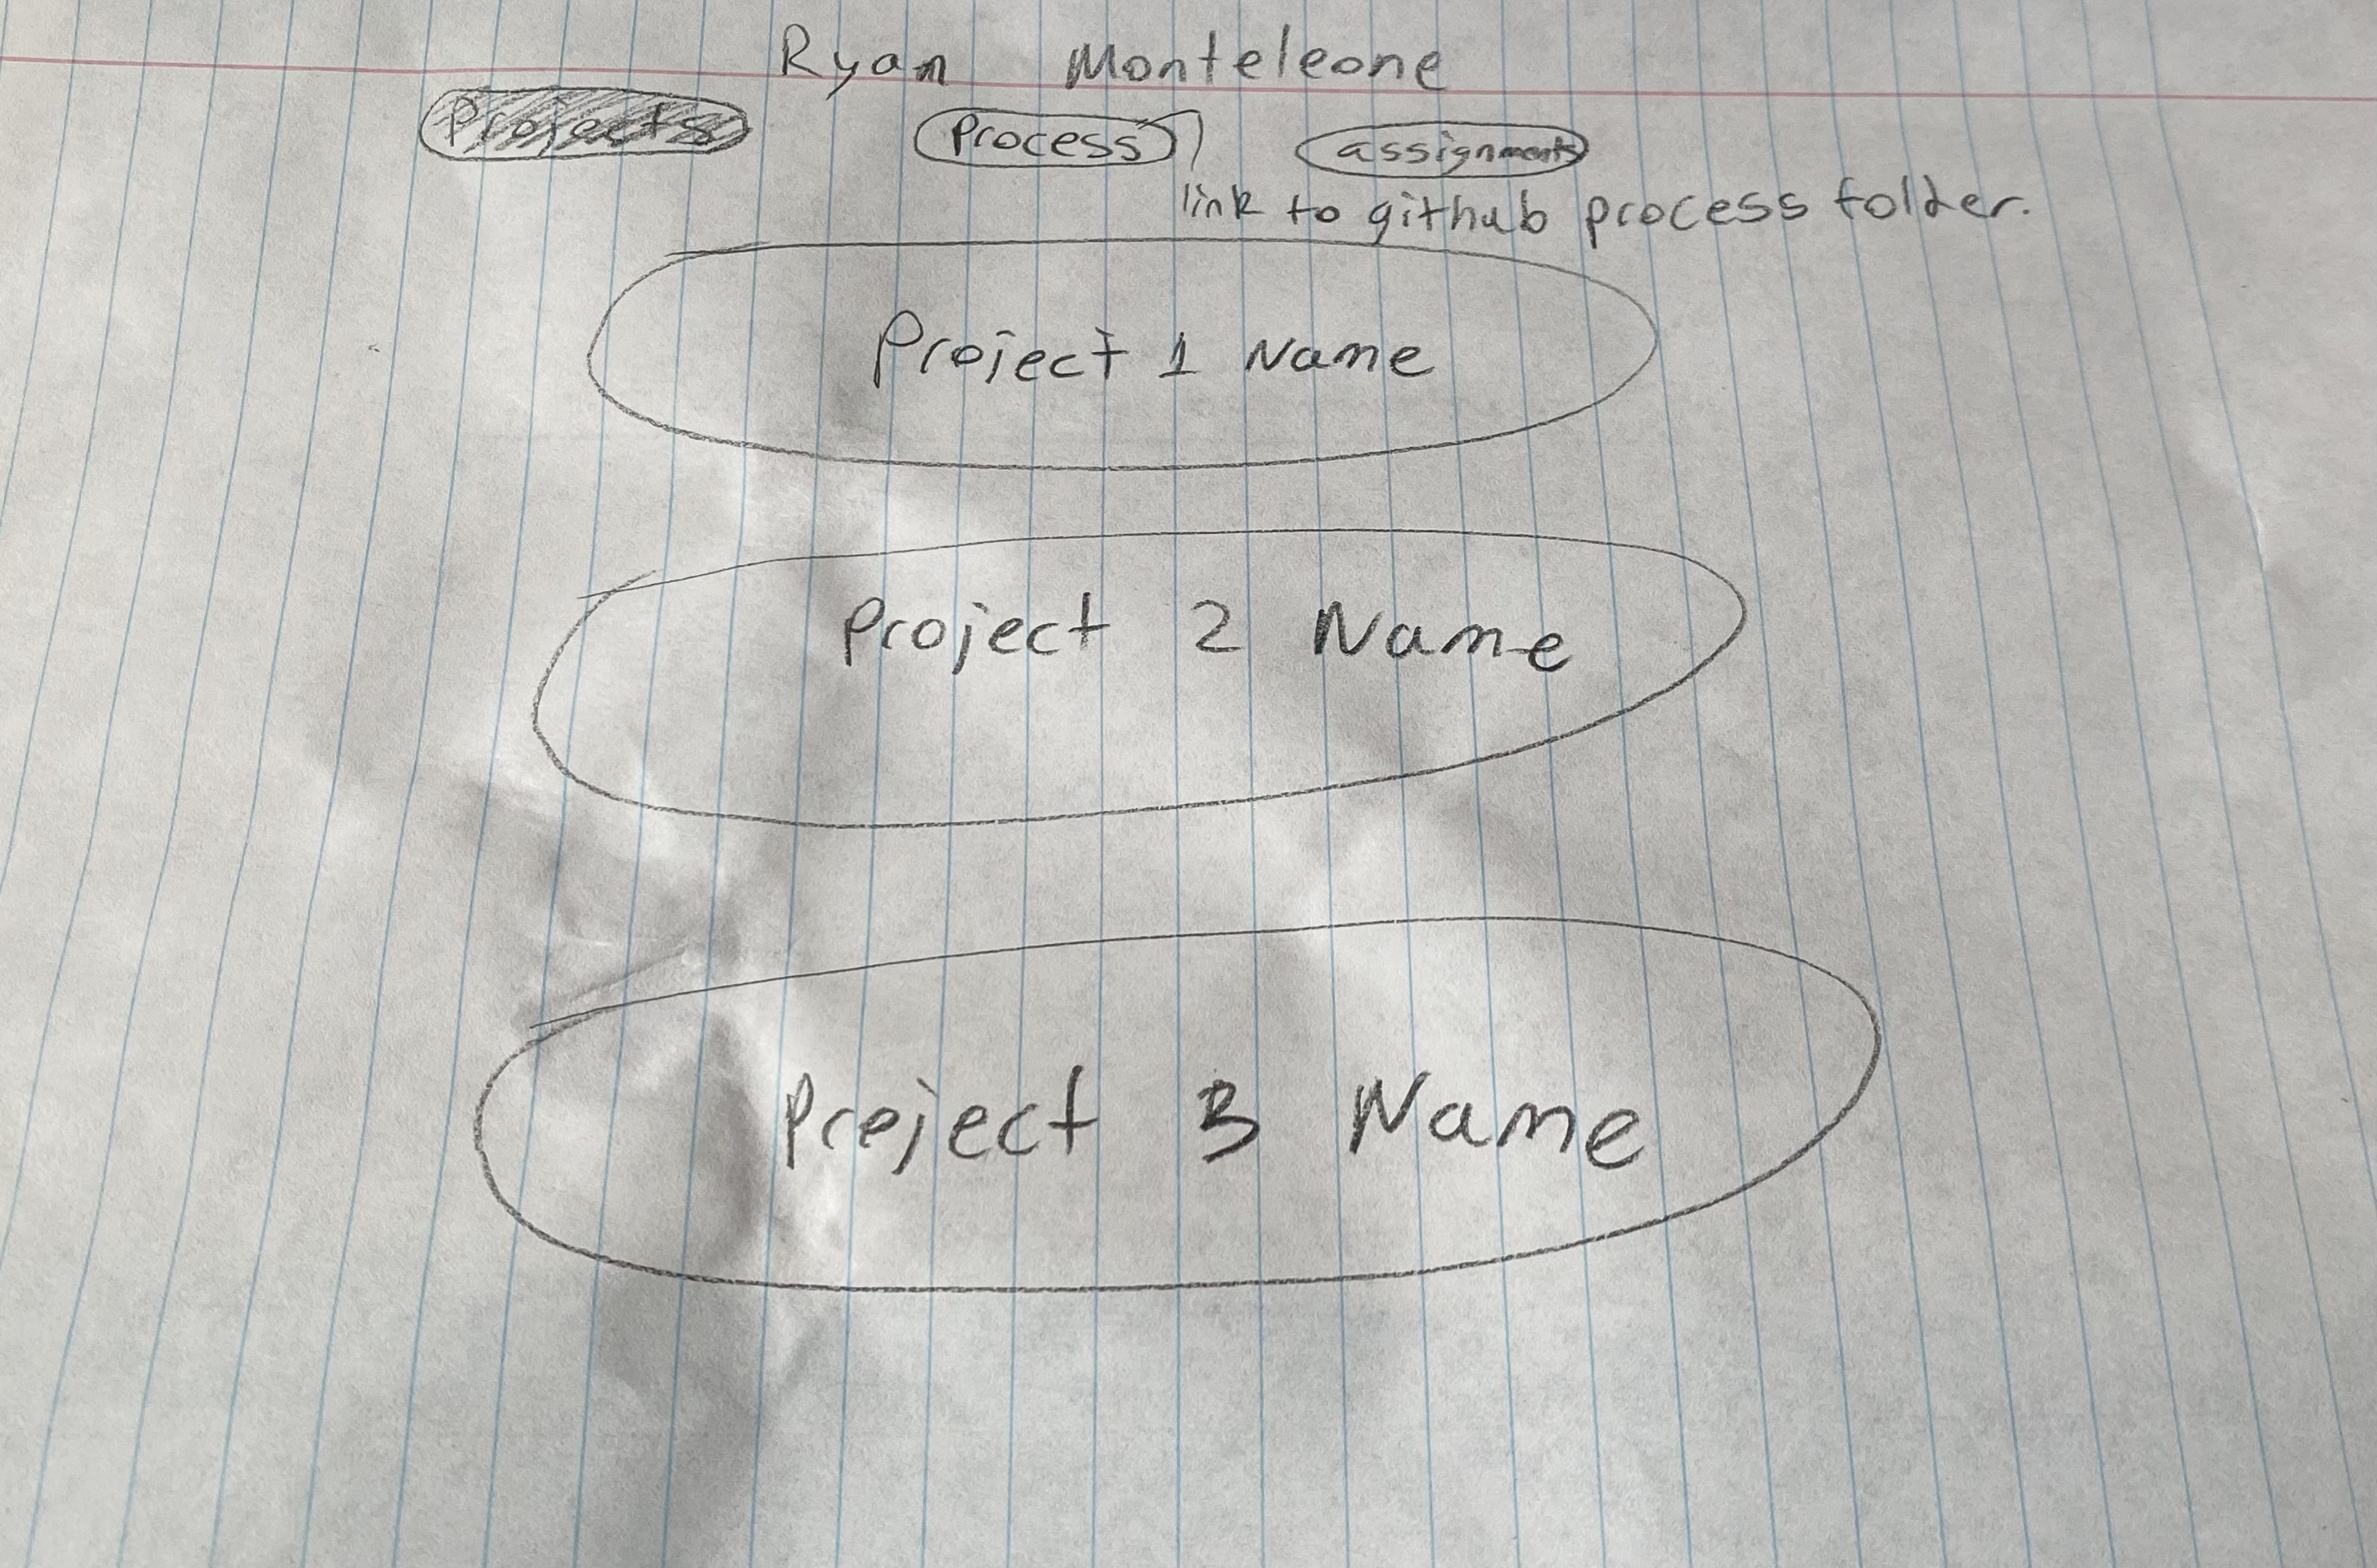 Ryan Monteleone
Projects Process assignments
link to github process folder.
Project 1 Name
Project 2 Name
Project 3 Name